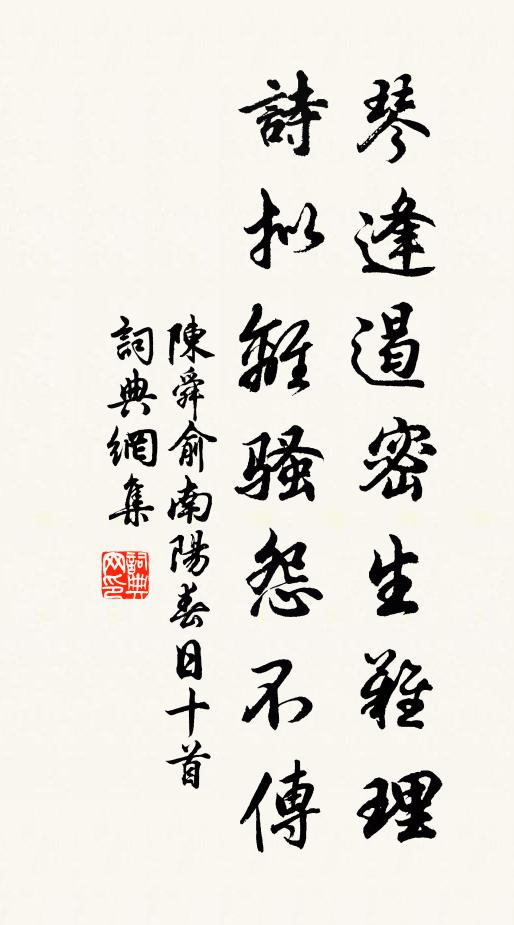 琴逢遏密生難理
詩擬離騷怨不傳
陳舜俞南陽春日十首
詞典網集
詞典網印